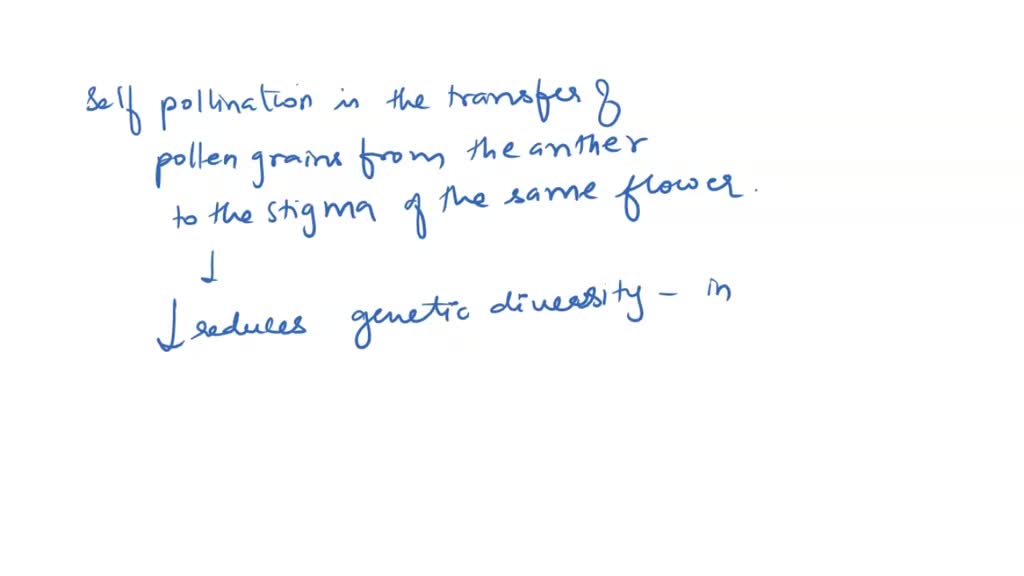 Self pollination is the transfer of
pollen grains from the anther
to the stigma of the same flower.
↓
↓ reduces genetic diversity - in